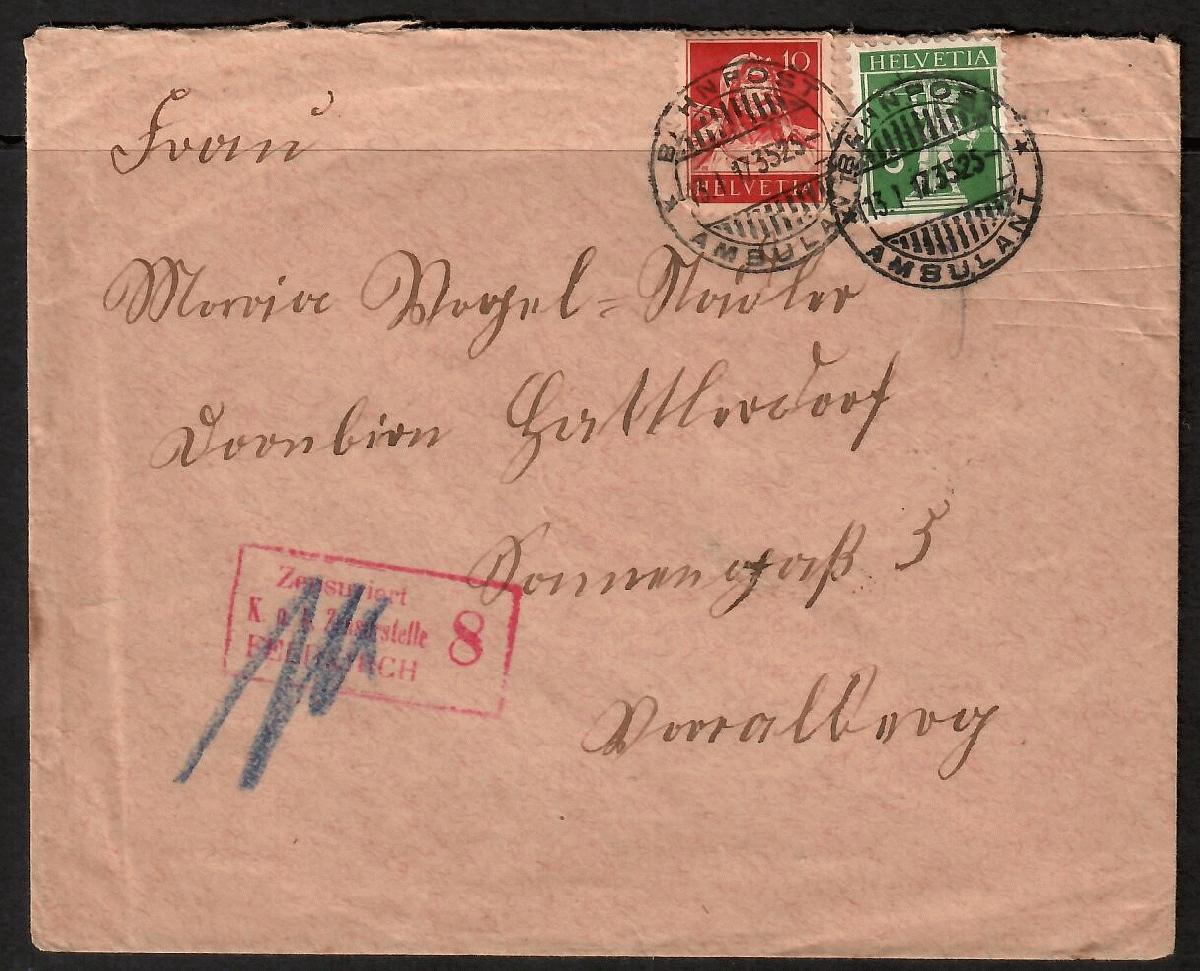 10
HELVETIA
HELVETIA
5
BAHNPOST
AMBULANT
13.I.17.3523-
BAHNPOST
AMBULANT
13.I.17.3523-
Frau
Maria Vogel=Stadler
Dornbirn Hattlerdorf
Sonnengaß 5
Voralberg
Zensuriert
K. u. k. Zensurstelle
FELDKIRCH
8